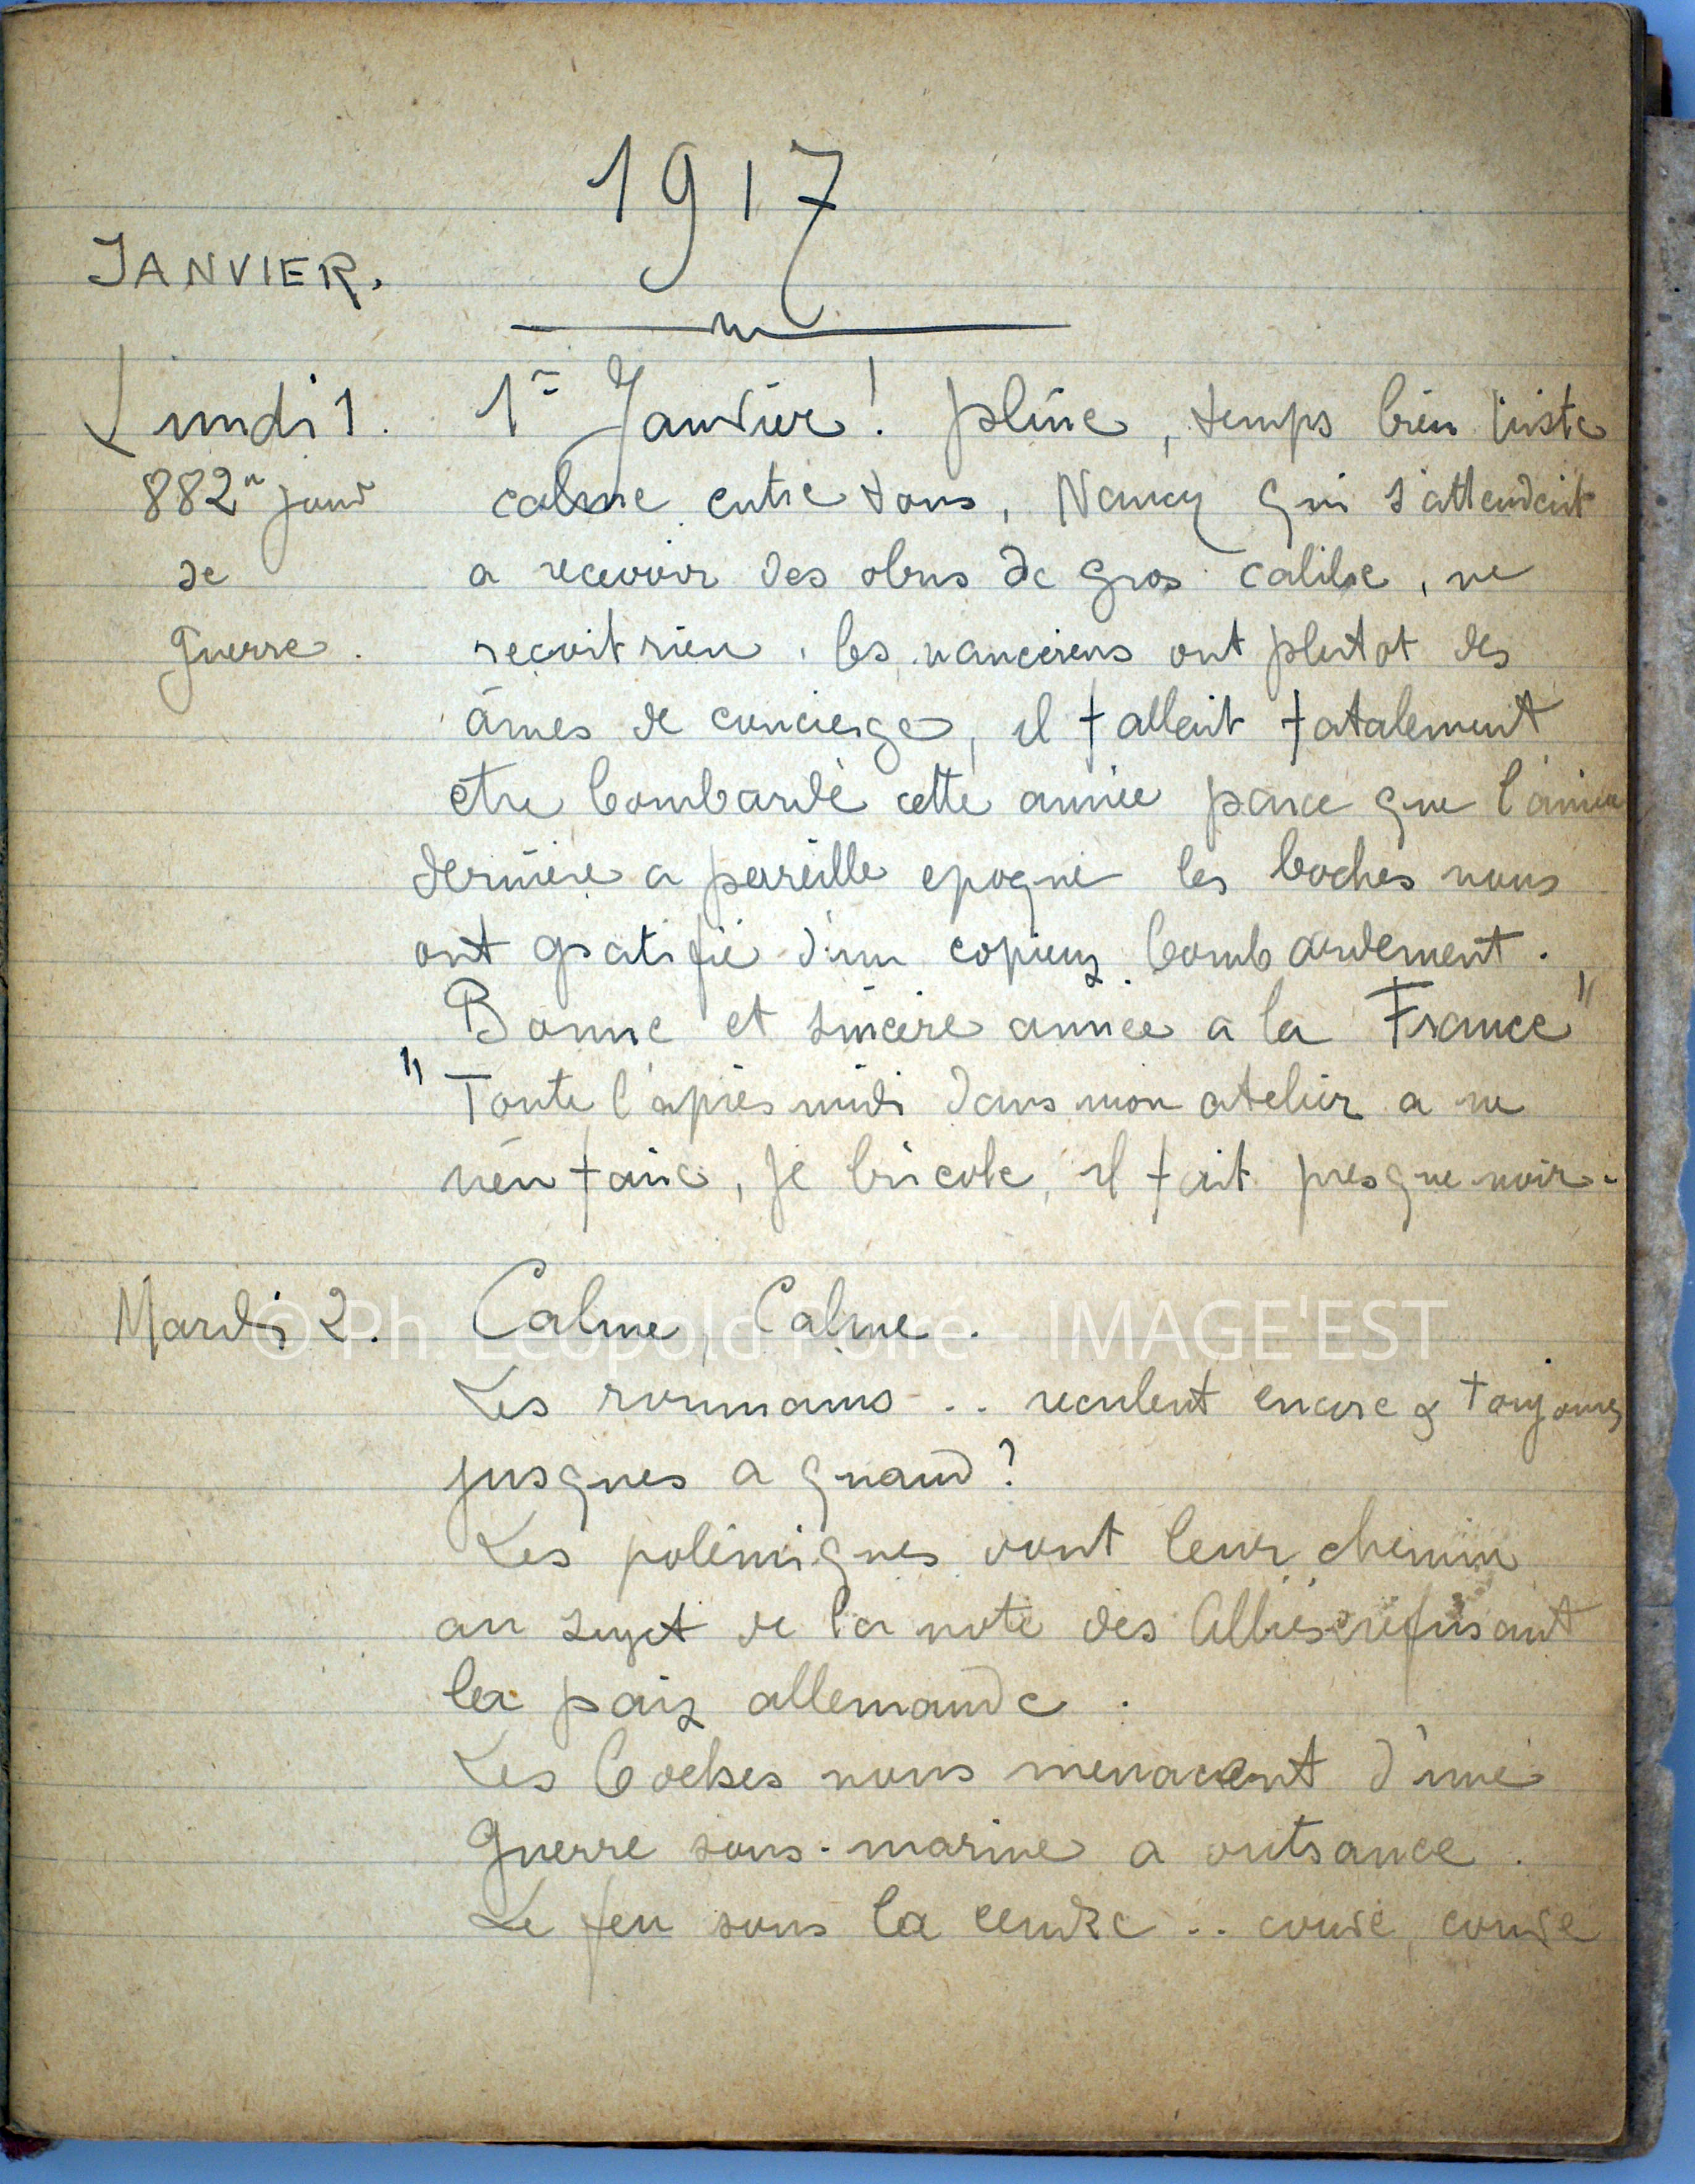 1917
JANVIER.
Lundi 1. 1er Janvier! pluie, temps bien triste
882e jour calme entre tous, Nancy qui s'attendait
de a recevoir des obus de gros calibre, ne
guerre. recoit rien. les nanceiens ont plutot des
âmes de concierge, il fallait fatalement
etre bombardé cette année parce que l'année
derniere a pareille epoque les boches nous
ont gratifié d'un copieux bombardement.
Bonne et sincere année a la France"
" Toute l'après midi dans mon atelier a ne
rien faire, je bricole, il fait presque noir.
Mardi 2. Calme, Calme.
Les roumains .. reculent encore & toujours
jusques a quand?
Les polémiques vont leur chemin
au sujet de la note des Alliés refusant
la paix allemande.
Les boches nous menacent d'une
guerre sous-marine a outrance.
Le feu sous la cendre .. couve, couve
© Ph. Léopold Poiré - IMAGE'EST